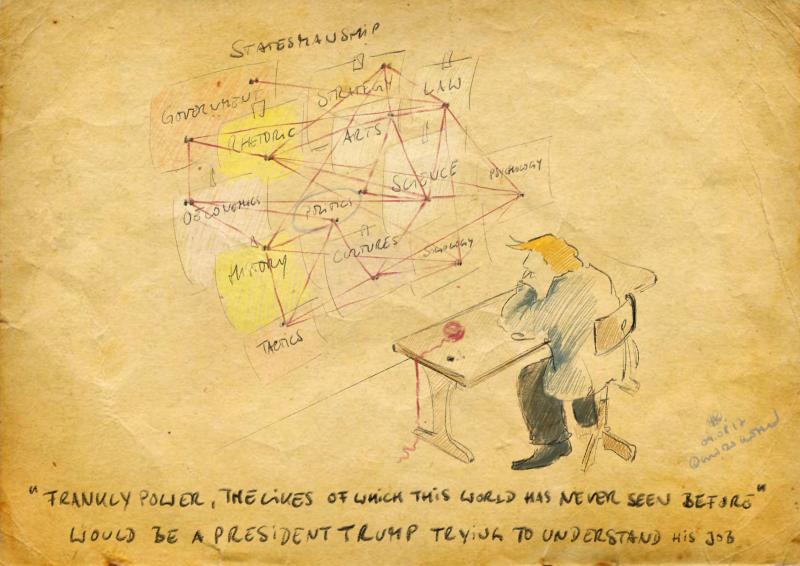 STATESMANSHIP
GOVERNMENT
STRATEGY
LAW
RHETORIC
ARTS
SCIENCE
PSYCHOLOGY
OECONOMICS
POLITICS
CULTURES
SOCIOLOGY
HISTORY
TACTICS
"FRANKLY POWER, THE LIKES OF WHICH THIS WORLD HAS NEVER SEEN BEFORE"
WOULD BE A PRESIDENT TRUMP TRYING TO UNDERSTAND HIS JOB